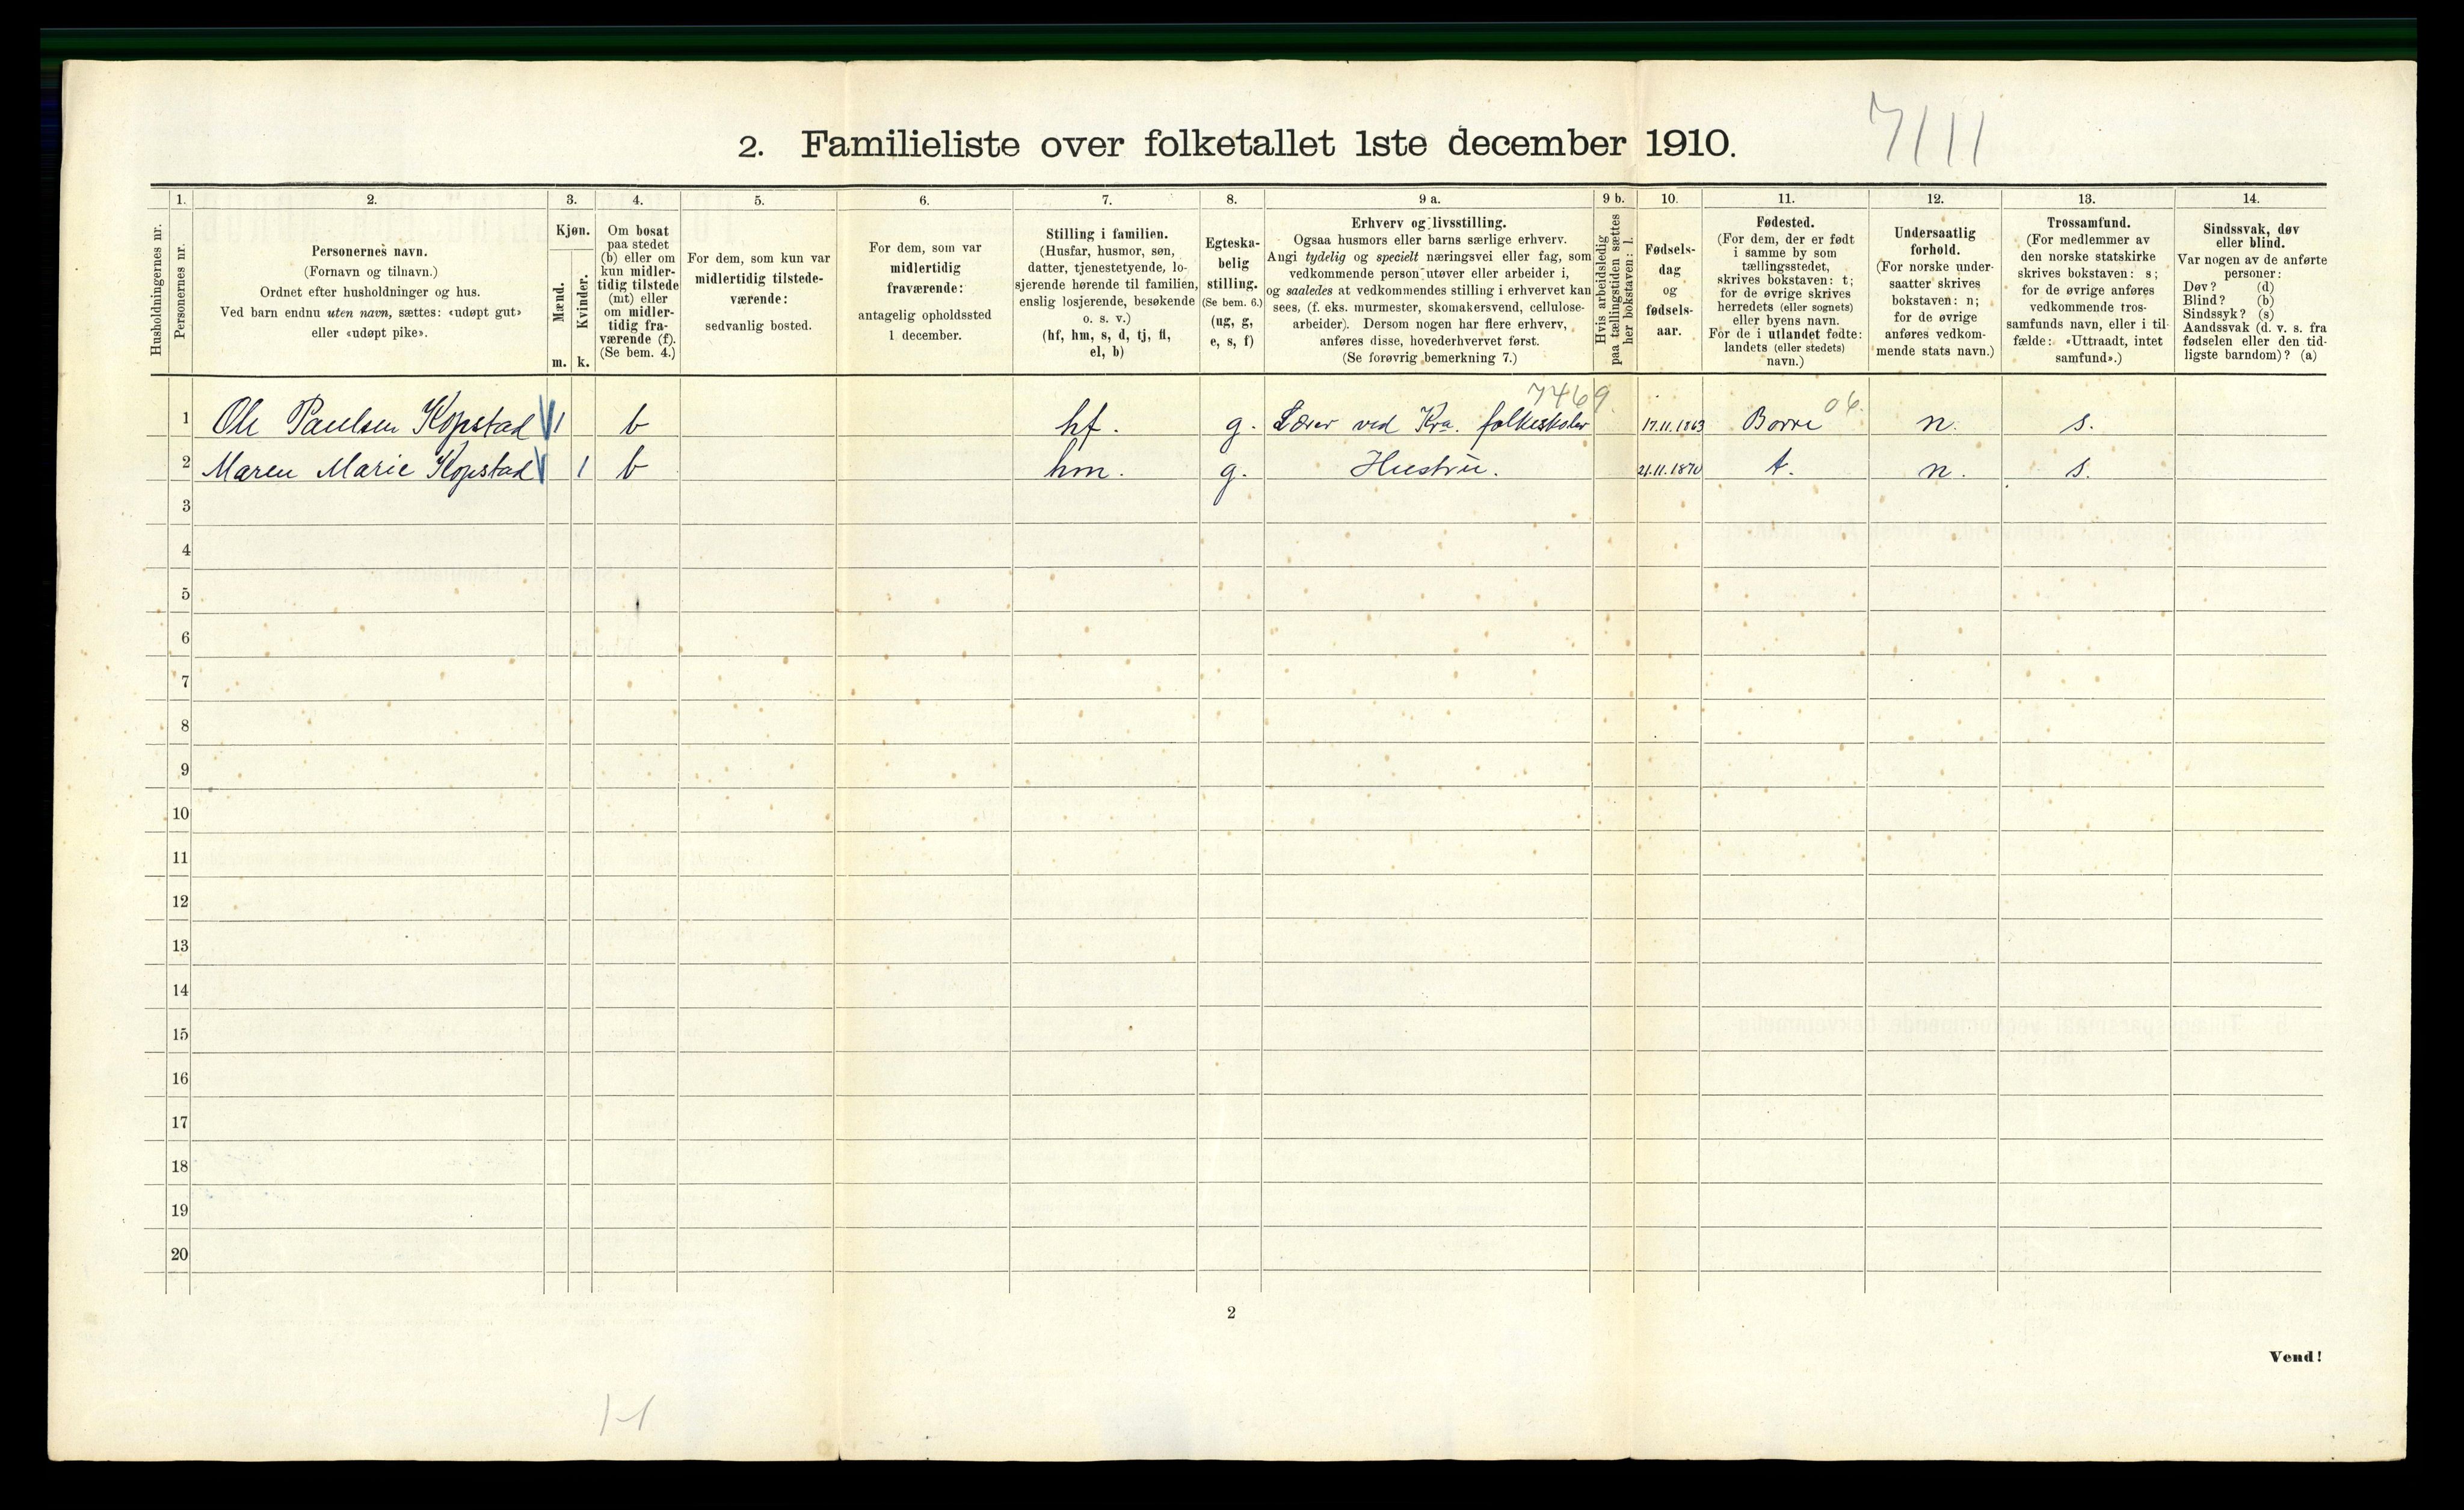 7111
2. Familieliste over folketallet 1ste december 1910.
1. 2. 3. 4. 5. 6. 7. 8. 9 a. 9 b. 10. 11. 12. 13. 14.
Husholdningernes nr.
Personernes nr.
Personernes navn.
(Fornavn og tilnavn.)
Ordnet efter husholdninger og hus.
Ved barn endnu uten navn, sættes: «udøpt gut»
eller «udøpt pike».
Kjøn.
Mænd.
Kvinder.
m. k.
Om bosat
paa stedet
(b) eller om
kun midler-
tidig tilstede
(mt) eller
om midler-
tidig fra-
værende (f).
(Se bem. 4.)
For dem, som kun var
midlertidig tilstede-
værende:
sedvanlig bosted.
For dem, som var
midlertidig
fraværende:
antagelig opholdssted
1 december.
Stilling i familien.
(Husfar, husmor, søn,
datter, tjenestetyende, lo-
sjerende hørende til familien,
enslig losjerende, besøkende
o. s. v.)
(hf, hm, s, d, tj, fl,
el, b)
Egteska-
belig
stilling.
(Se bem. 6.)
(ug, g,
e, s, f)
Erhverv og livsstilling.
Ogsaa husmors eller barns særlige erhverv.
Angi tydelig og specielt næringsvei eller fag, som
vedkommende person utøver eller arbeider i,
og saaledes at vedkommendes stilling i erhvervet kan
sees, (f. eks. murmester, skomakersvend, cellulose-
arbeider). Dersom nogen har flere erhverv,
anføres disse, hovederhvervet først.
(Se forøvrig bemerkning 7.)
Hvis arbeidsledig
paa tællingstiden sættes
her bokstaven: l.
Fødsels-
dag
og
fødsels-
aar.
Fødested.
(For dem, der er født
i samme by som
tællingsstedet,
skrives bokstaven: t;
for de øvrige skrives
herredets (eller sognets)
eller byens navn.
For de i utlandet fødte:
landets (eller stedets)
navn.)
Undersaatlig
forhold.
(For norske under-
saatter skrives
bokstaven: n;
for de øvrige
anføres vedkom-
mende stats navn.)
Trossamfund.
(For medlemmer av
den norske statskirke
skrives bokstaven: s;
for de øvrige anføres
vedkommende tros-
samfunds navn, eller i til-
fælde: «Uttraadt, intet
samfund».)
Sindssvak, døv
eller blind.
Var nogen av de anførte
personer:
Døv? (d)
Blind? (b)
Sindssyk? (s)
Aandssvak (d. v. s. fra
fødselen eller den tid-
ligste barndom)? (a)
7469
06.
1 Ole Paulsen Kopstad 1 b hf. g. Lærer ved Kra. folkeskoler 17.11.1863 Borre n. s.
2 Maren Marie Kopstad 1 b hm. g. Hustru. 21.11.1870 t. n. s.
3
4
5
6
7
8
9
10
11
12
13
14
15
16
17
18
19
20
2
Vend!
1-1